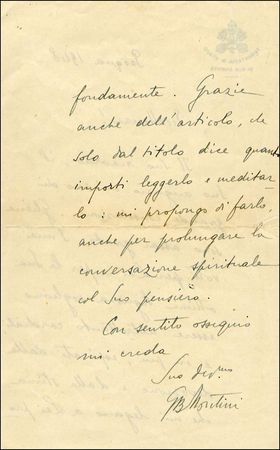 Pasqua 1948
fondamente. Grazie
anche dell'articolo, che
solo dal titolo dice quanto
importi leggerlo e meditar
lo: mi propongo di farlo,
anche per prolungare la
conversazione spirituale
col Suo pensiero.
Con sentito ossequio
mi creda
Suo dev.mo
GBMontini